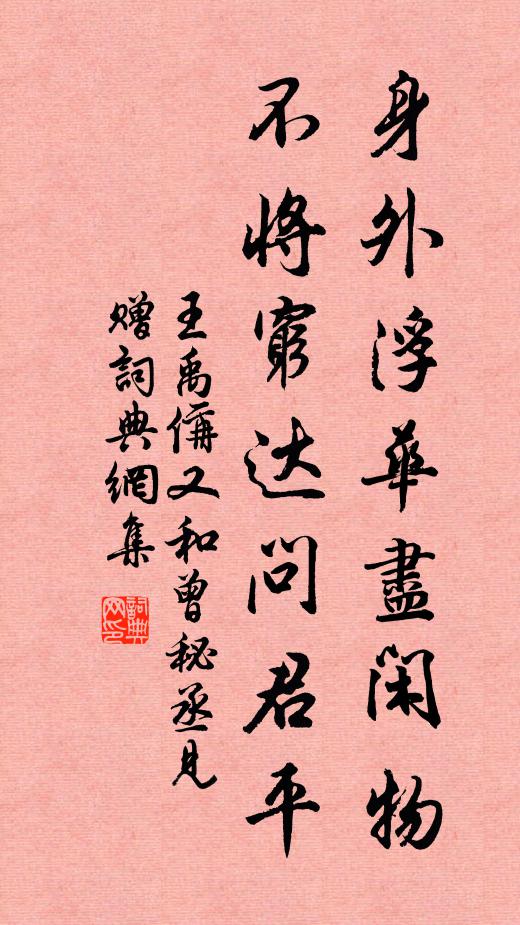 身外浮華盡閑物
不將窮达問君平
王禹偁又和曾秘丞見
贈詞典網集
詞典网印